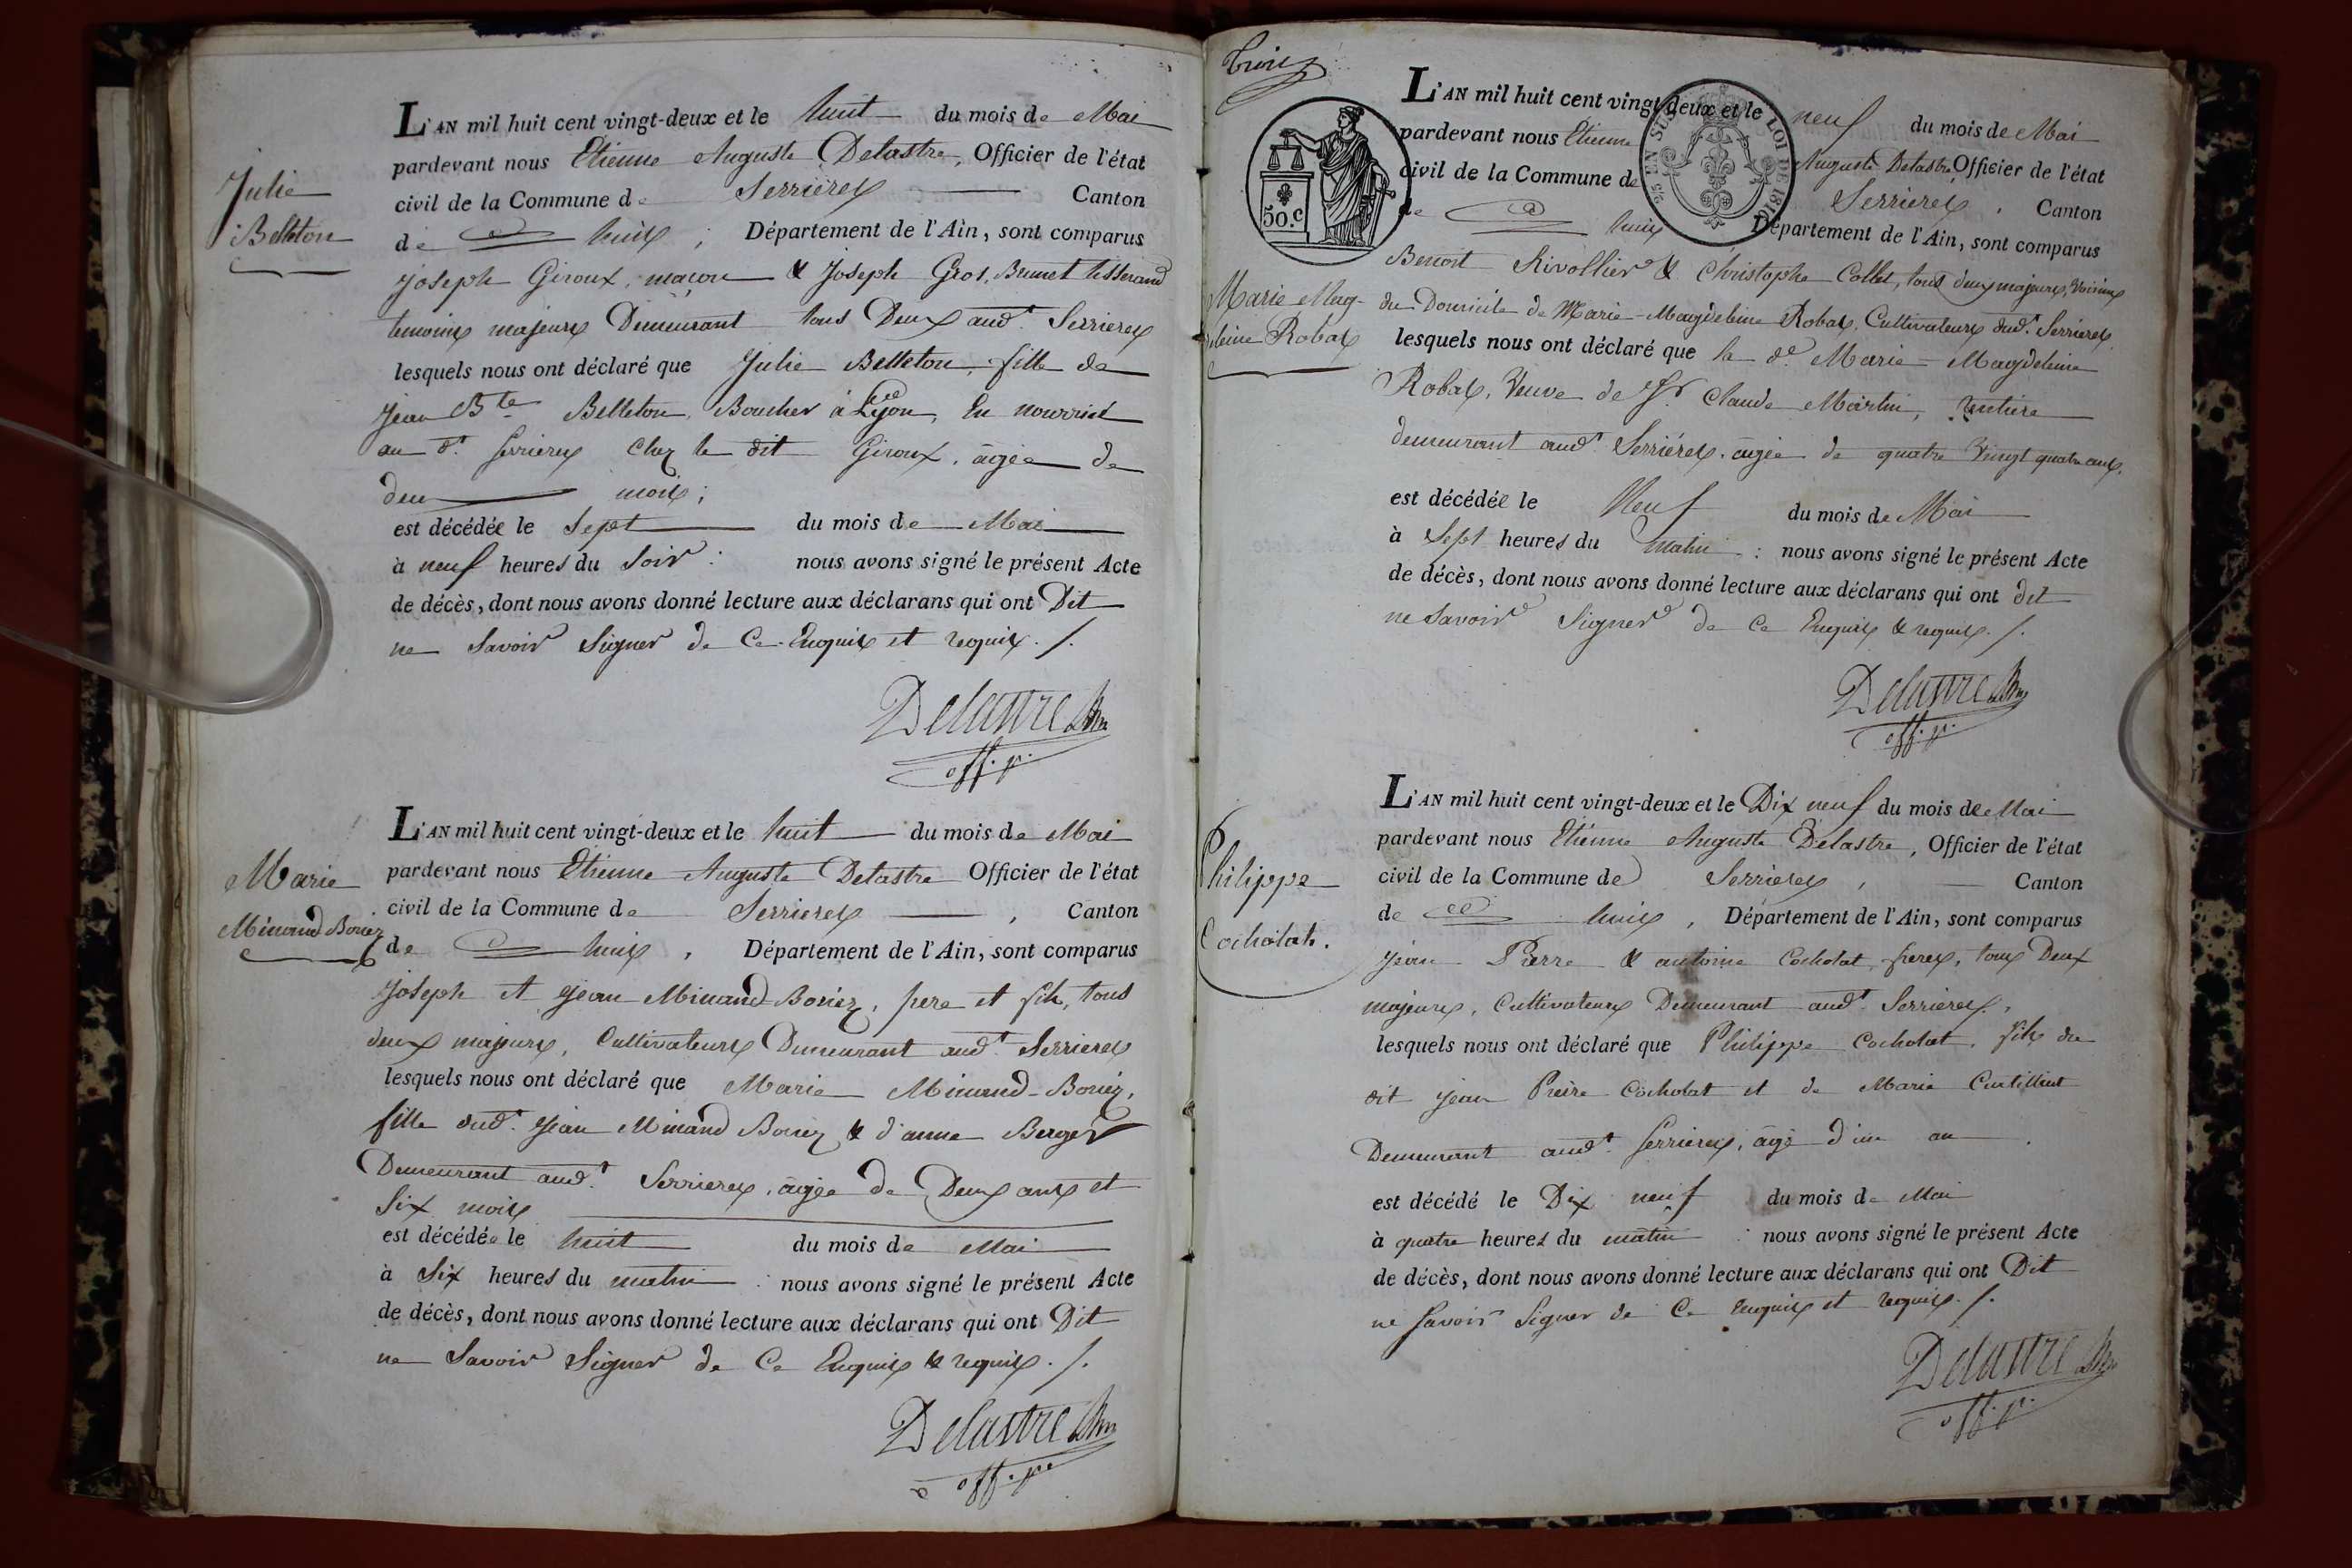 L'AN mil huit cent vingt-deux et le huit du mois de Mai
pardevant nous Etienne Auguste Delastre, Officier de l'état
civil de la Commune de Serrieres Canton
de huis ; Département de l'Ain, sont comparus
Joseph Giroux, maçon & Joseph Gros, Brunet tisserand
temoins majeurs Demeurant tous Deux aud.t Serrieres
lesquels nous ont déclaré que Julie Belleton, fille de
Jean B.te Belleton, Boucher à Lyon, En nourrice
au d.t Serrieres chez le dit Giroux, âgée de
deux mois ;
est décédée le Sept du mois de Mai
à neuf heures du Soir : nous avons signé le présent Acte
de décès, dont nous avons donné lecture aux déclarans qui ont Dit
ne Savoir Signer de Ce Enquis et requis ./.
Delastre
off. p.
Julie
Belleton
L'AN mil huit cent vingt-deux et le huit du mois de Mai
pardevant nous Etienne Auguste Delastre Officier de l'état
civil de la Commune de Serrieres , Canton
de huis , Département de l'Ain, sont comparus
Joseph et Jean Minand Boriez, pere et fils, tous
deux majeurs, Cultivateurs Demeurant aud.t Serrieres
lesquels nous ont déclaré que Marie Minand-Boriez,
fille dud.t Jean Minand Boriez & d'anne Berger
Demeurant aud.t Serrieres, âgée de Deux ans et
Six mois
est décédée le huit du mois de Mai
à Six heures du matin : nous avons signé le présent Acte
de décès, dont nous avons donné lecture aux déclarans qui ont Dit
ne Savoir Signer de Ce Enquis & requis ./.
Delastre
off. p.
Marie
Minand Boriez
trois
50.c
EN SUS LOI DE 1816
L'AN mil huit cent vingt-deux et le neuf du mois de Mai
pardevant nous Etienne Auguste Delastre Officier de l'état
civil de la Commune de Serrieres , Canton
de huis Département de l'Ain, sont comparus
Benoit Rivollier & Christophe Collet, tous deux majeurs, Voisins
du Domicile de Marie-Magdeleine Robas, Cultivateurs dud.t Serrieres
lesquels nous ont déclaré que la d.e Marie-Magdeleine
Robas, Veuve de S.r Claude Martin, rentière
demeurant aud.t Serrières, âgée de quatre Vingt quatre ans,
est décédée le Neuf du mois de Mai
à Sept heures du matin : nous avons signé le présent Acte
de décès, dont nous avons donné lecture aux déclarans qui ont dit
ne Savoir Signer de Ce Enquis & requis ./.
Delastre
off. p.
Marie Mag-
deleine Robas
L'AN mil huit cent vingt-deux et le Dix neuf du mois de Mai
pardevant nous Etienne Auguste Delastre, Officier de l'état
civil de la Commune de Serrieres , Canton
de huis , Département de l'Ain, sont comparus
Jean Pierre & antoine Cocholat, freres, tous Deux
majeurs, Cultivateurs Demeurant aud.t Serrieres,
lesquels nous ont déclaré que Philippe Cocholat, fils du
dit Jean Pierre Cocholat et de Marie
Demeurant aud.t Serrieres, âgé d'un an
est décédé le Dix neuf du mois de Mai
à quatre heures du matin : nous avons signé le présent Acte
de décès, dont nous avons donné lecture aux déclarans qui ont Dit
ne Savoir Signer de Ce Enquis et requis ./.
Delastre
off. p.
Philippe
Cocholat.